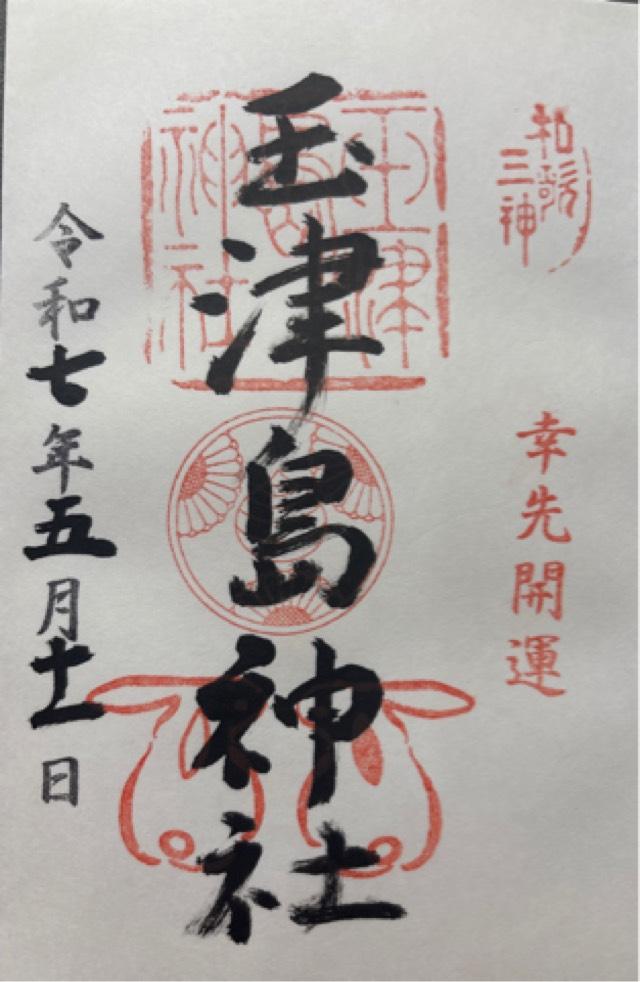 和歌三神
幸先開運
玉津島神社
玉津島神社
令和七年五月十一日